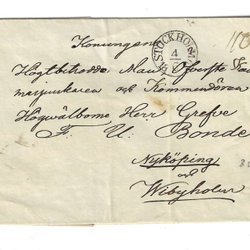 Konungens
STOCKHOLM
4
Högtbetrodde Man, Öfverste
marsjunkaren och Kommendören
Högwälborne Herr Grefve
F. U. Bonde
Nyköping
och
Wibyholm